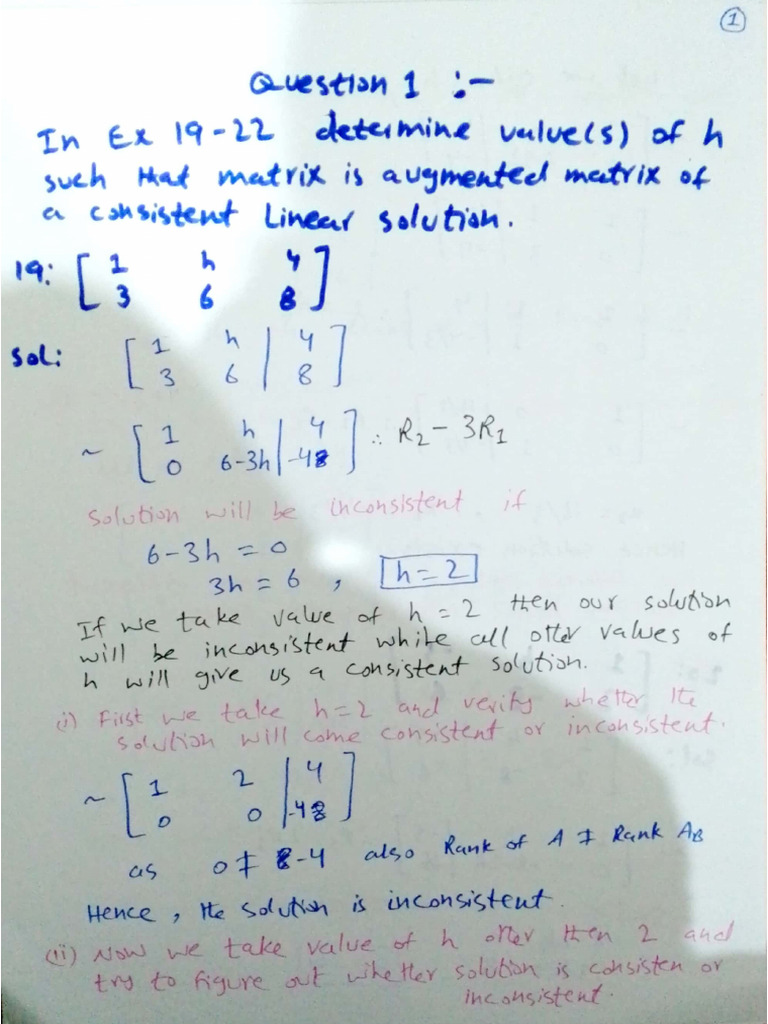 1
Question 1 :-
In Ex 19-22 determine value(s) of h
such that matrix is augmented matrix of
a consistent Linear solution.
19: [ 1 h 4
3 6 8 ]
Sol: [ 1 h | 4
3 6 | 8 ]
~ [ 1 h | 4
0 6-3h | -4 ] ∴ R₂ - 3R₁
Solution will be inconsistent if
6-3h = 0
3h = 6 , h = 2
If we take value of h = 2 then our solution
will be inconsistent while all other values of
h will give us a consistent solution.
(i) First we take h=2 and verify whether the
solution will come consistent or inconsistent.
~ [ 1 2 | 4
0 0 | -4 ]
as 0 ≠ -4 also Rank of A ≠ Rank AB
Hence, the solution is inconsistent.
(ii) Now we take value of h other then 2 and
try to figure out whether solution is consisten or
inconsistent.